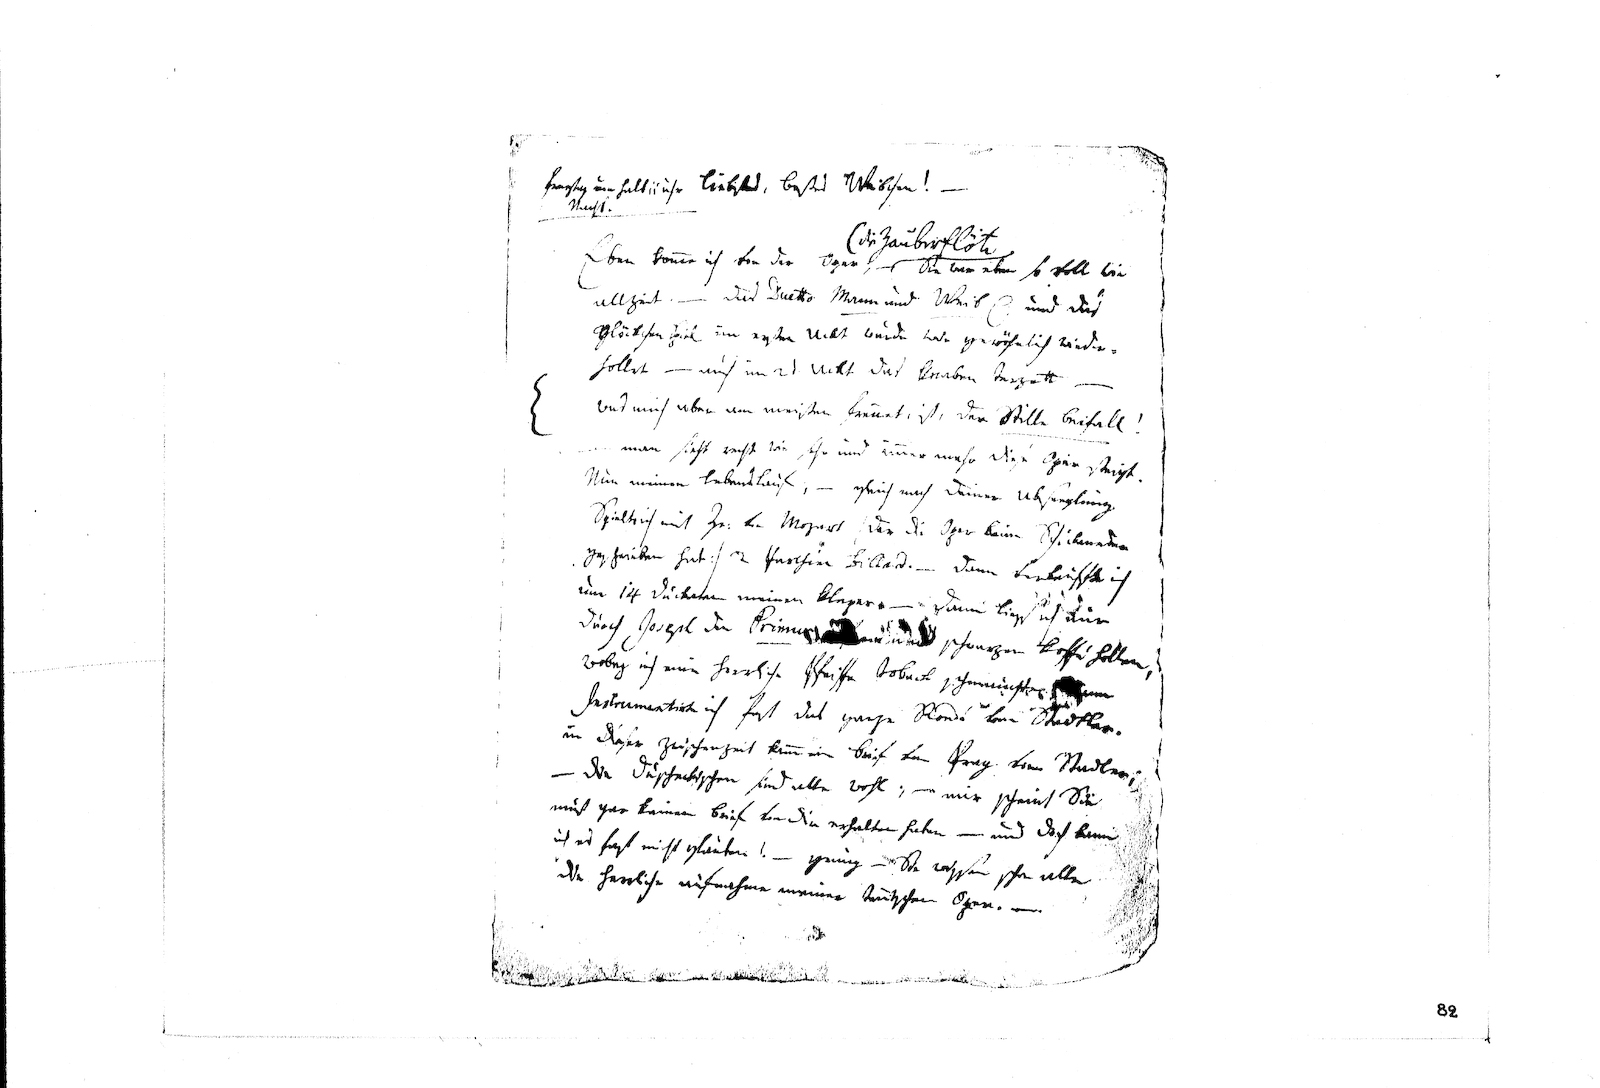 freytag um halb 11 uhr liebstes, bestes Weibchen! —
Nachts.
(die Zauberflöte
Eben komme ich von der Oper; — Sie war eben so voll wie
allzeit. — das Duetto Mann und Weib etc: und das
Glöckchen Spiel im ersten Ackt wurde wie gewöhnlich wieder-
hollet — auch im 2t Ackt das knaben Terzett —
was mich aber am meisten freuet, ist, der Stille beifall!
— man sieht recht wie sehr und immer mehr diese Oper steigt.
Nun meinen lebenslauf; — gleich nach Deiner Abseeglung
Spielte ich mit Hr: von Mozart (der die Oper beim Schickaneder
geschrieben hat:) 2 Parthien Billard. — dann verkauffte ich
um 14 duckaten meinen kleper. — dann liess ich mir
durch Joseph den Primus schwarzen koffé hollen,
wobey ich eine herrliche Pfeiffe toback schmauchte;
Instrumentirte ich fast das ganze Rondó vom Stadtler.
in dieser zwischenzeit kamm ein brief von Prag vom Stadler;
— die Duschekischen sind alle wohl; — mir scheint Sie
muß gar keinen brief von dir erhalten haben — und doch kann
ich es fast nicht glauben! — genug — Sie wissen schon alle
die herrliche aufnahme meiner teutschen Oper. —
82